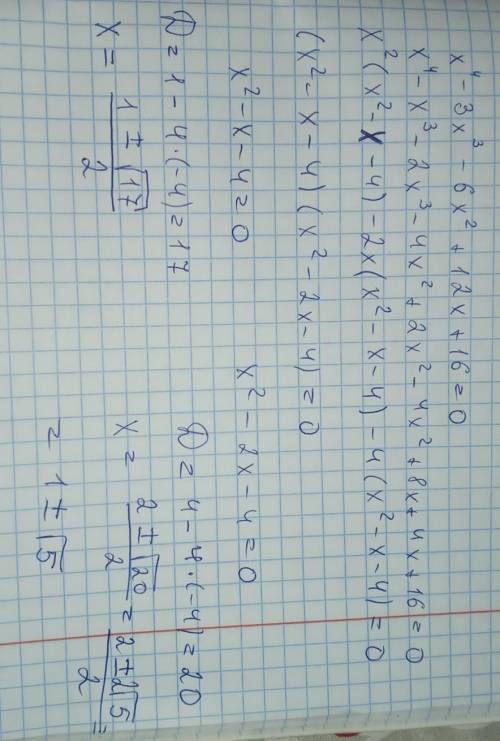 x⁴ - 3x³ - 6x² + 12x + 16 = 0
x⁴ - x³ - 2x³ - 4x² + 2x² - 4x² + 8x + 4x + 16 = 0
x² (x² - x - 4) - 2x (x² - x - 4) - 4 (x² - x - 4) = 0
(x² - x - 4) (x² - 2x - 4) = 0
x² - x - 4 = 0
D = 1 - 4 · (-4) = 17
x = (1 ± √17)/2
x² - 2x - 4 = 0
D = 4 - 4 · (-4) = 20
x = (2 ± √20)/2 = (2 ± 2√5)/2 =
= 1 ± √5